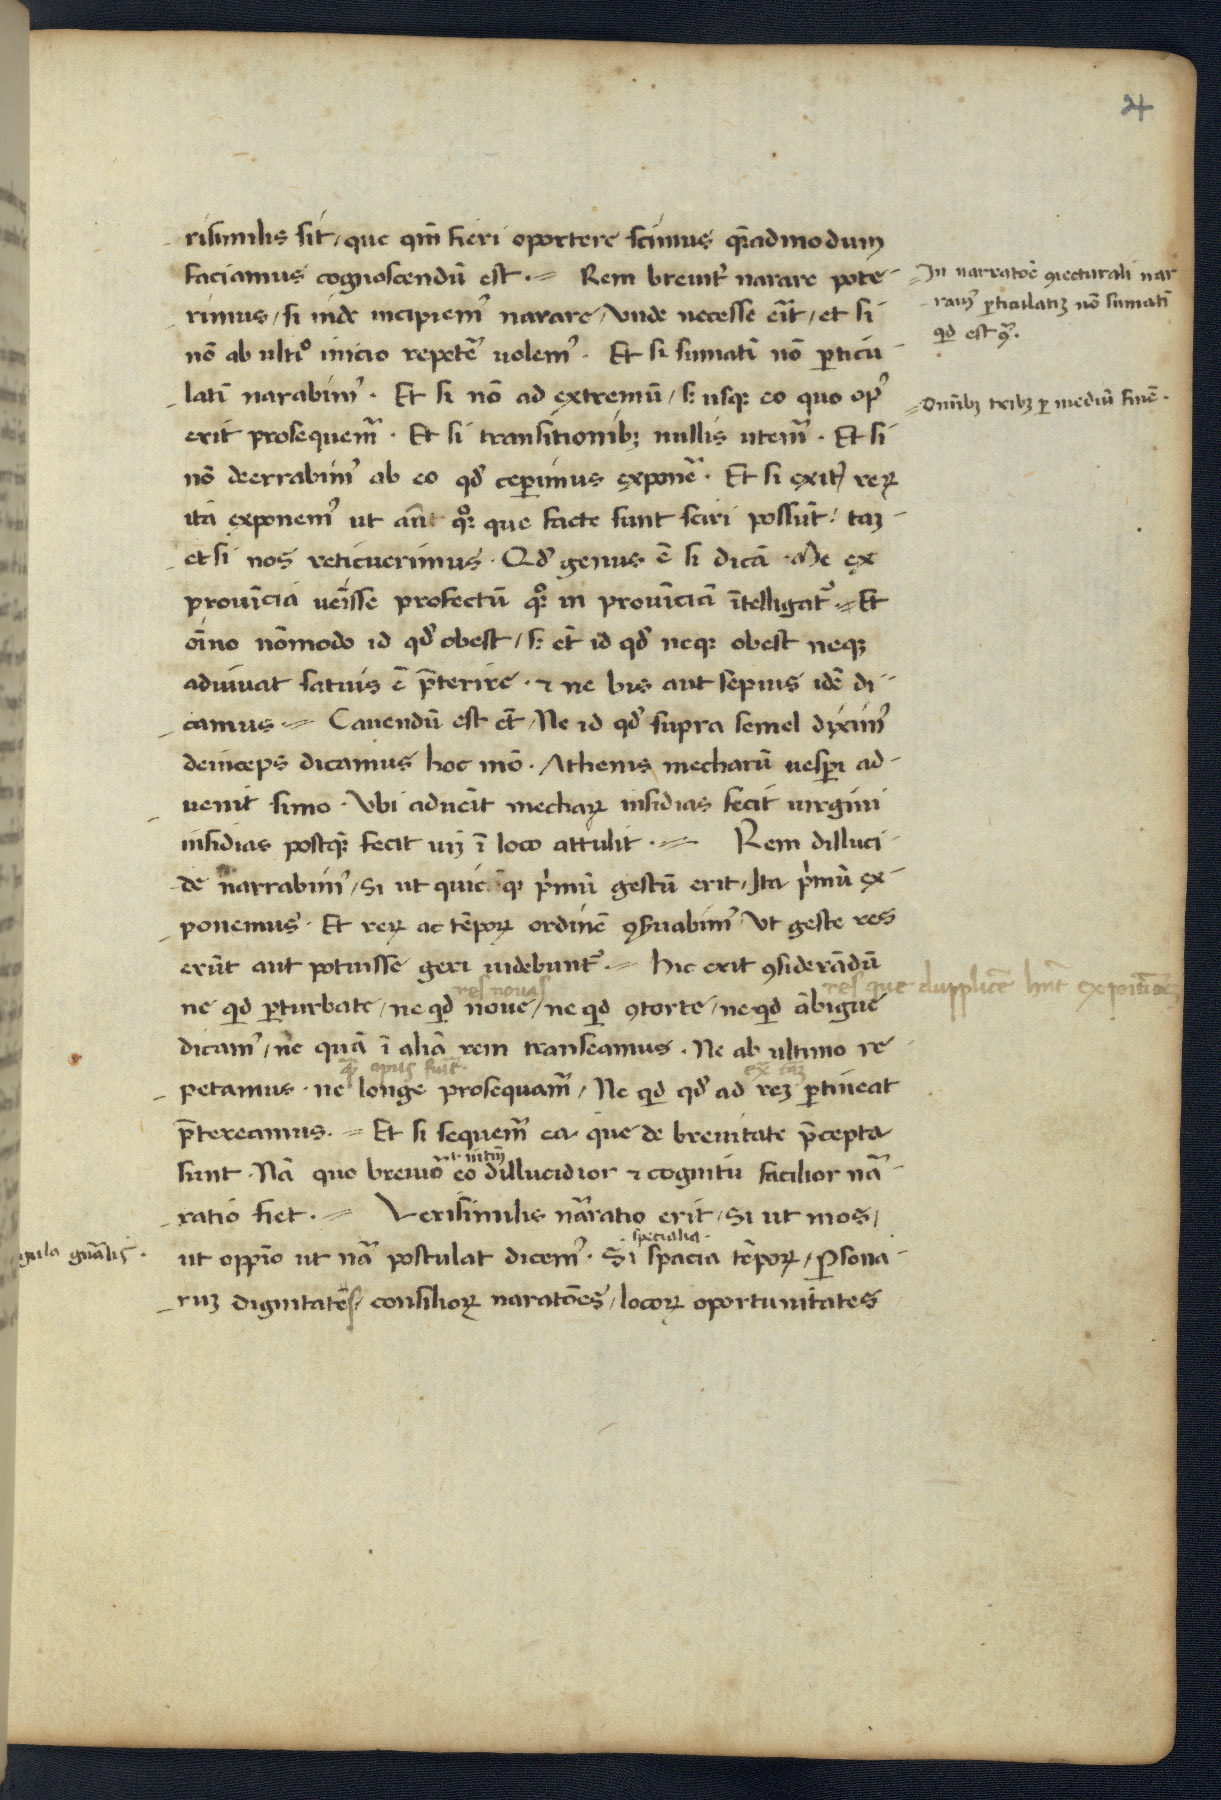 24
risimilis sit, que qm̄ fieri oportere scimus q̄admodum
faciamus cognoscendū est. Rem breuit̄ narare pote-
rimus, si inde incipiem⁹ narare, Vnde necesse erīt, et si
nō ab ultiº inicio repetē uolem⁹. Et si sumatī nō p̱ticu
latī narabim⁹. Et si nō ad extremū, sꝫ usqꝫ eo quo op⁹
erit prosequem̄. Et si transitionibꝫ nullis utem̄. Et si
nō deerrabim⁹ ab eo qđ ceperimus exponē. Et si exit⁹ reꝝ
ita exponem⁹ ut an̄ qꝫ que facte sunt sciri possūt. taꝫ
et si nos reticuerimus. Qđ genus ē si dicā. Me ex
prouīcia uēisse profectū qꝫ in prouīciā ītelligat̄. Et
oīno nōmodo id qđ obest, sꝫ et̄ id qđ neqꝫ obest neqꝫ
adiuuat satius ē p̄terire. ⁊ ne bis aut sepius idē di-
camus. Cauendū est et̄, Ne id qđ supra semel dixim⁹
deinceps dicamus hoc mō. Athenis mecharū uesperi ad-
uenit simo. Vbi aduēit mecharꝝ insidias fecit uirgini
insidias postqꝫ fecit ī loco attulit. Rem dilluci-
de narrabim⁹, Si ut quicqꝫ p̄mū gestū erit, Ita p̄mū ex-
ponemus. Et reꝝ ac tēpoꝝ ordinē ꝯſuabim⁹ Vt geste res
erūt aut potuisse geri uidebunt̄. Hic erit ꝯsiderādū
res nouas res que dupplicē hn̄t expōnes
ne qd ꝑturbate, ne qd noue, ne qd ꝯtorte, ne qd ābigue
dicam⁹, ne quā ī aliā rem transeamus. Ne ab ultimo re-
q̄ opus fuit
petamus. ne longe prosequam̄, Ne qd qđ ad reꝫ ꝑtineat
p̄tereamus. Et si sequem̄ ea que de breuitate p̄cepta
sunt. Nā quo breuiō eo dillucidior ⁊ cognitu facilior nā-
ratio fiet. Verisimilis nāratio erit, Si ut mos,
specialia
ut oppīo ut nā postulat dicem⁹. Si spacia tēpoꝝ, ꝑsona-
ruꝫ dignitates, consilioꝝ naratōes, locoꝝ oportunitates
In narratōe ꝯiecturali nar
ram⁹ ꝑticulatiꝫ nō sumatī
qd est
Omībꝫ tribꝫ ꝑ mediū finē.
gula gn̄alis.